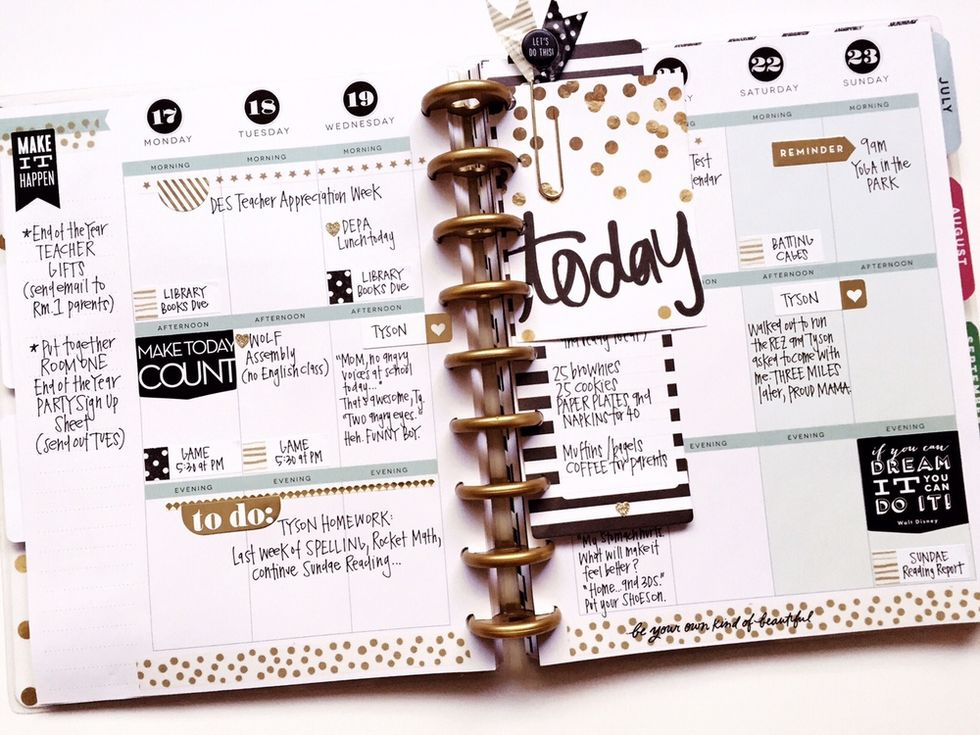 LET'S
DO THIS!
MAKE
IT
HAPPEN
*End of the Year
TEACHER
GIFTS
(send email to
Rm. 1 parents)
*Put together
ROOM ONE
End of the Year
PARTY Sign Up
Sheet
(send out TUES)
17
MONDAY
18
TUESDAY
19
WEDNESDAY
MORNING
MORNING
MORNING
DES Teacher Appreciation Week
DEPA
Lunch today
LIBRARY
BOOKS DUE
LIBRARY
BOOKS DUE
AFTERNOON
AFTERNOON
AFTERNOON
MAKE TODAY
COUNT
WOLF
Assembly
(no English class)
TYSON
"MOM, no angry
voices at school
today..."
That's awesome, Ty.
"Two angry eyes."
Heh. FUNNY BOY.
GAME
5:30 at PM
GAME
5:30 at PM
EVENING
EVENING
EVENING
to do:
TYSON HOMEWORK:
Last week of SPELLING, Rocket Math,
continue Sundae Reading...
today
25 brownies
25 cookies
PAPER PLATES and
NAPKINS for 40
Muffins / bagels
COFFEE for parents
"My stomach hurts.
What will make it
feel better?
"Home...and 3DS."
Put your SHOES on.
21
22
SATURDAY
23
SUNDAY
MORNING
MORNING
Test
REMINDER
9am
YOGA in the
PARK
BATTING
CAGES
AFTERNOON
AFTERNOON
TYSON
Walked out to run
the REZ and Tyson
asked to come with
me. THREE MILES
later, PROUD MAMA.
EVENING
EVENING
EVENING
if you can
DREAM
IT YOU
CAN
DO IT!
Walt Disney
SUNDAE
Reading Report
be your own kind of beautiful
JULY
AUGUST